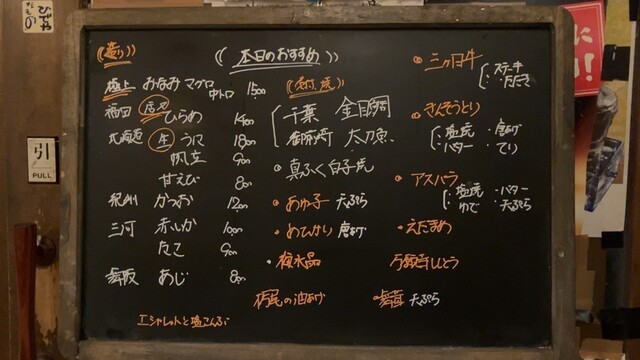 造り
本日のおすすめ
極上 みなみマグロ 中トロ 1500
ひらめ 1400
北海道 生 うに 1800
帆立 900
甘えび 800
紀州 かつお 1200
三河 赤いか 1000
たこ 900
舞阪 あじ 800
エシャレットと塩こんぶ
千葉 金目鯛
御前崎 太刀魚
真ふぐ白子焼
あゆ子 天ぷら
めひかり 唐あげ
の油あげ
天ぷら
三ヶ日牛
・ステーキ
・たたき
きんそうどり
・塩焼 ・唐あげ
・バター ・てり
アスパラ
・塩焼 ・バター
・ゆで ・天ぷら
えだまめ
万願寺しとう
引
PULL